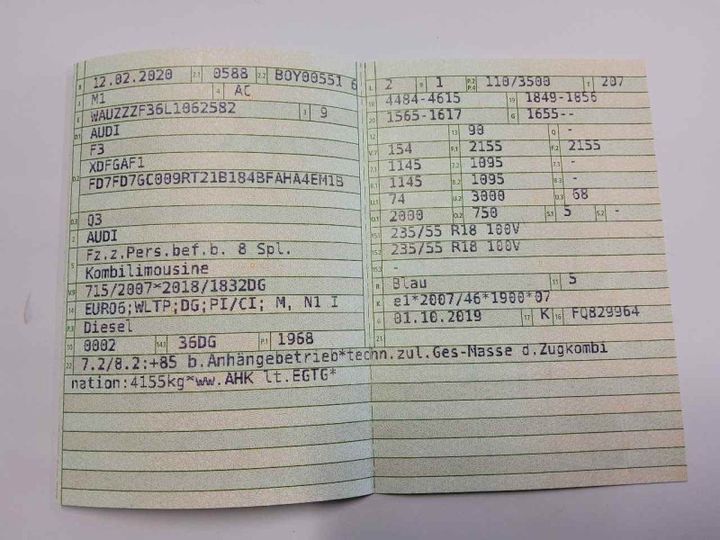 B 12.02.2020 2.1 0588 2.2 BOY00551 6
J M1 4 AC
E WAUZZZF36L1062582 3 9
D.1 AUDI
F3
XDFGAF1
D.2 FD7FD7GC009RT21B184BFAHA4EM1B
D.3 Q3
2 AUDI
Fz.z.Pers.bef.b. 8 Spl.
5 Kombilimousine
V.9 715/2007*2018/1832DG
14 EURO6;WLTP;DG;PI/CI; M, N1 I
P.3 Diesel
10 0002 14.1 36DG P.1 1968
22 7.2/8.2:+85 b.Anhängebetrieb*techn.zul.Ges-Masse d.Zugkombi
nation:4155kg*ww.AHK lt.EGTG*
L 2 9 1 P.2 P.4 110/3500 T 207
18 4484-4615 19 1849-1856
20 1565-1617 G 1655--
12 - 13 90 Q -
V.7 154 F.1 2155 F.2 2155
7.1 1145 7.2 1095 7.3 -
8.1 1145 8.2 1095 8.3 -
U.1 74 U.2 3000 U.3 68
O.1 2000 O.2 750 S.1 5 S.2 -
15.1 235/55 R18 100V
15.2 235/55 R18 100V
15.3 -
R Blau 11 5
K e1*2007/46*1900*07
6 01.10.2019 17 K 16 FQ829964
21